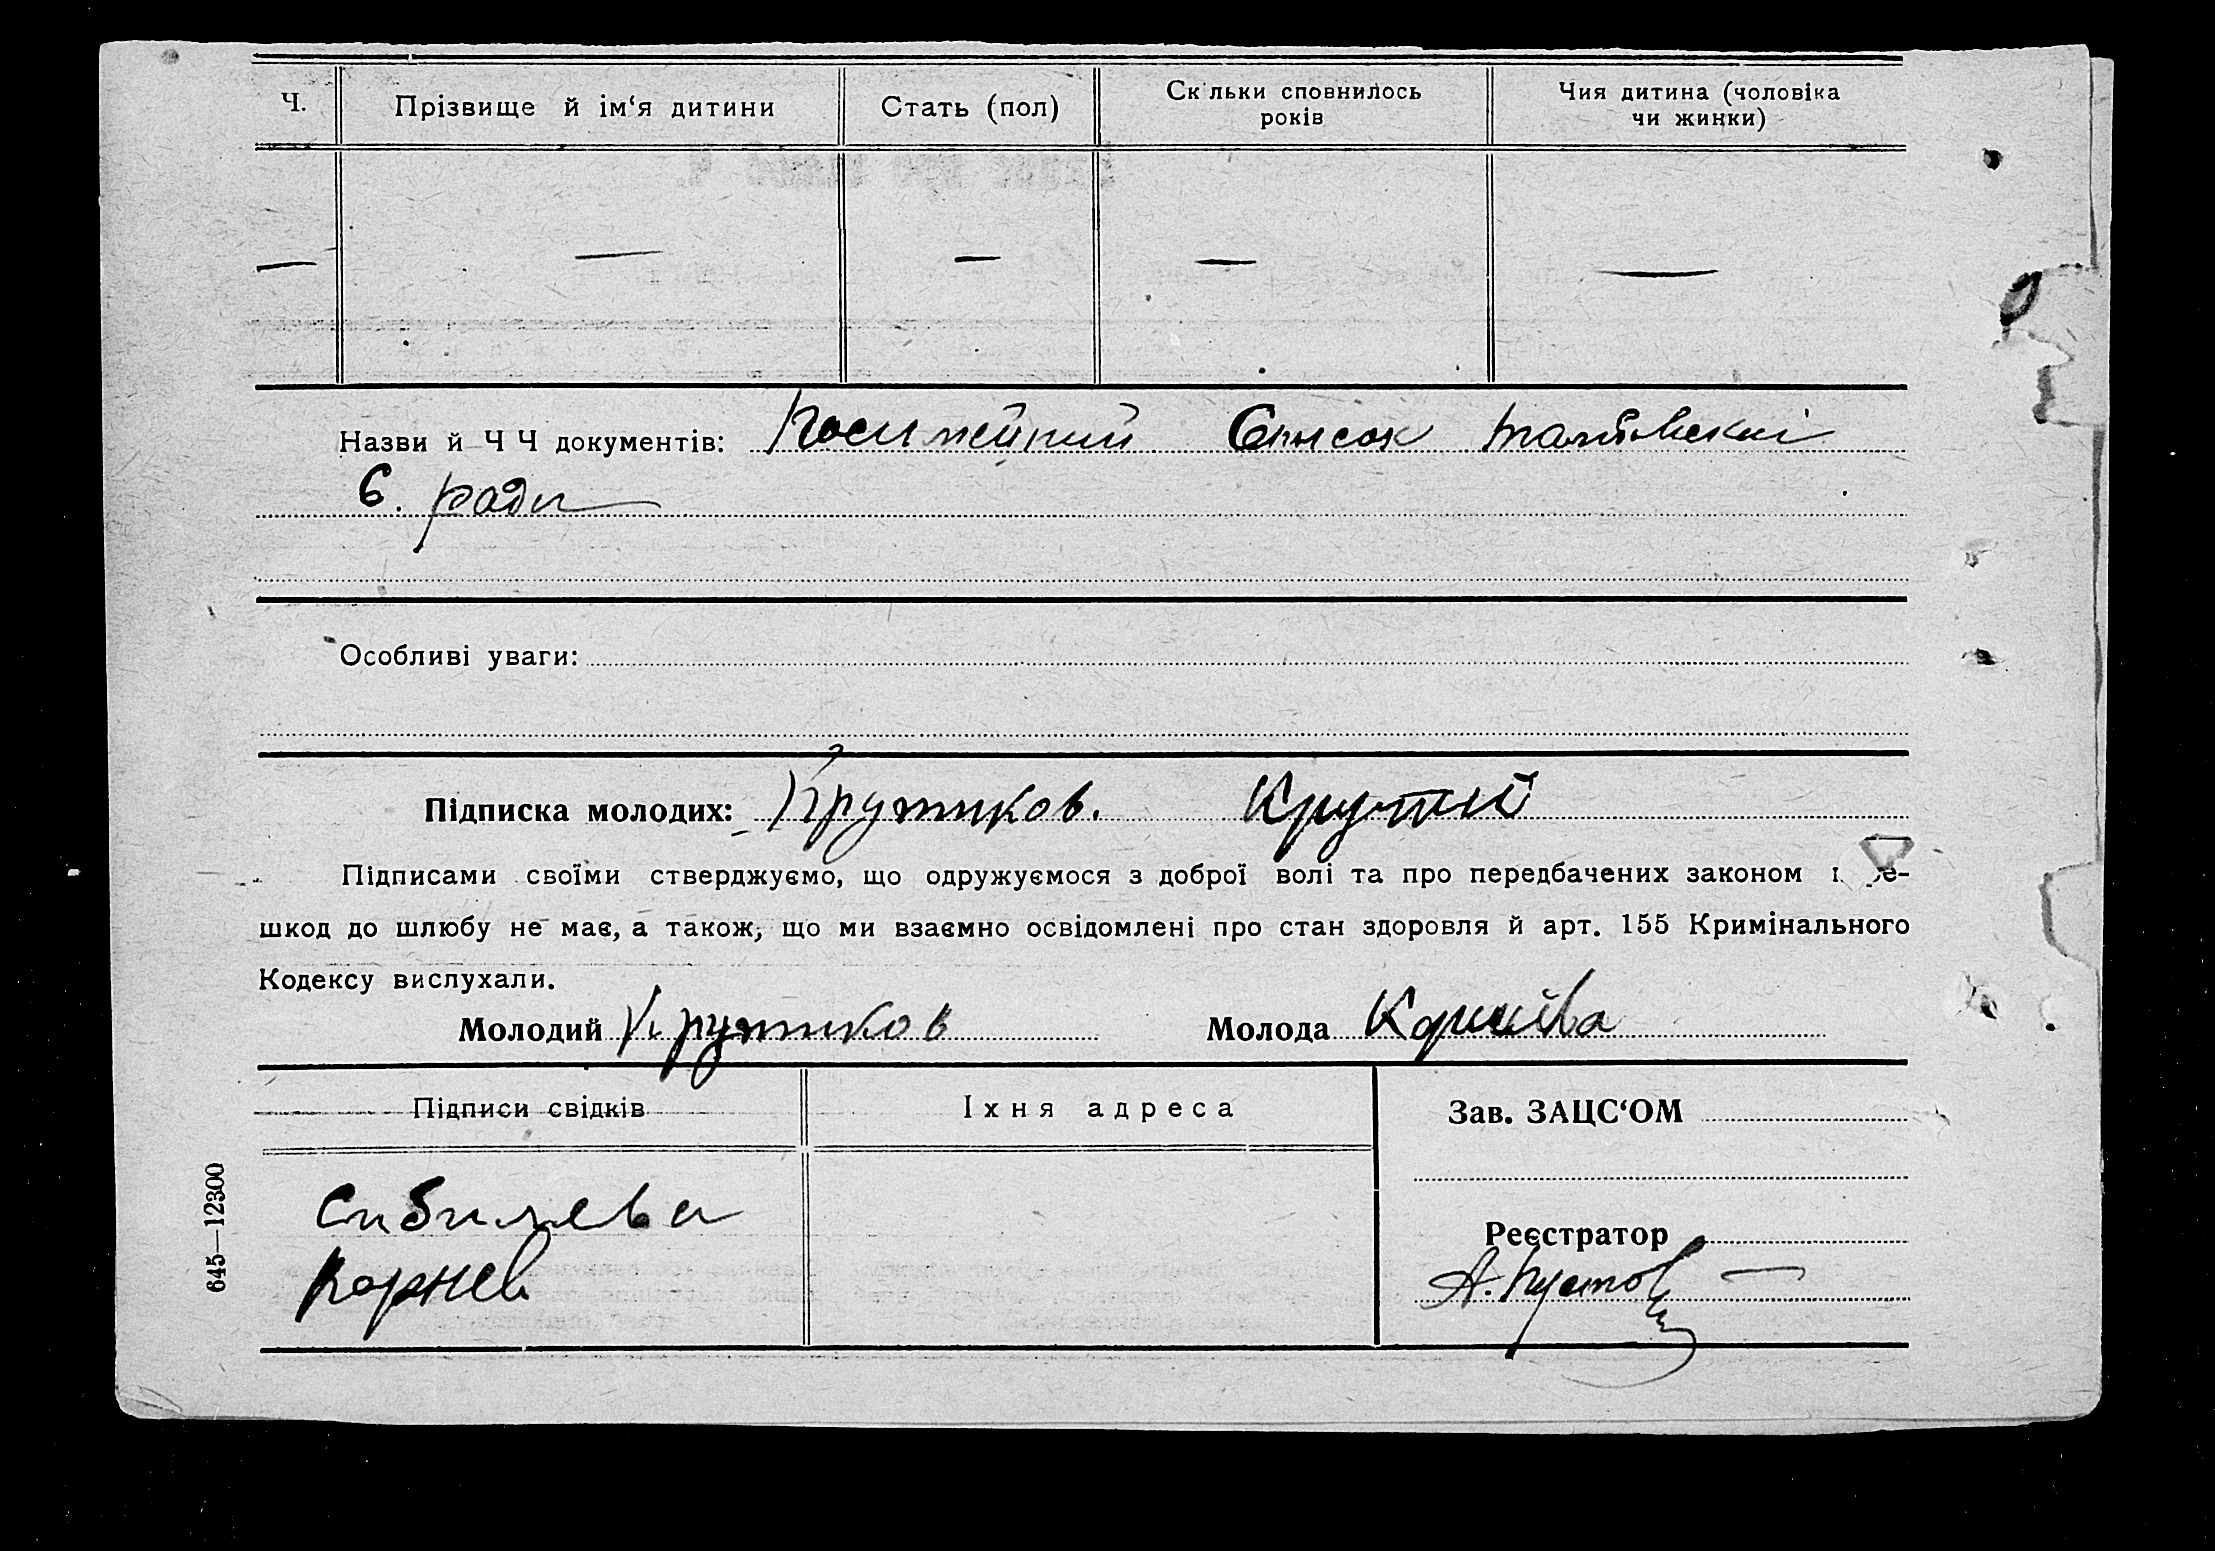 Ч. Прізвище й ім‘я дитини Стать (пол) Скільки сповнилось років Чия дитина (чоловіка чи жинки)
— — — — —
Назви й Ч Ч документів: Посимейний Список
С. ради
Особливі уваги:
Підписка молодих: Крутиков. Крутий
Підписами своїми стверджуємо, що одружуємося з доброї волі та про передбачених законом пе-
шкод до шлюбу не має, а також, що ми взаємно освідомлені про стан здоровля й арт. 155 Кримінального
Кодексу вислухали.
Молодий Крутиков Молода Корнєва
Підписи свідків Іхня адреса Зав. ЗАЦС‘ОМ
Сибилева
Реєстратор
Корнев
А. Пустов
645—12300